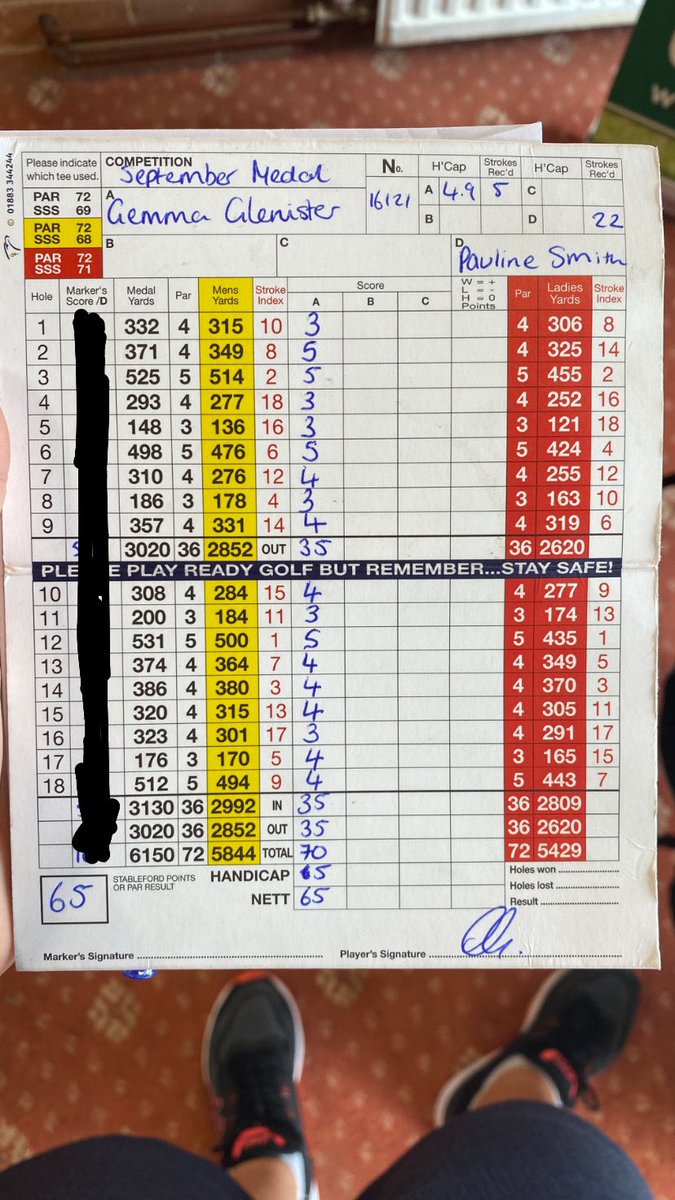 © 01883 344244
Please indicate which tee used. COMPETITION September Medal No. H'Cap Strokes Rec'd H'Cap Strokes Rec'd
PAR 72 SSS 69 A Gemma Glenister 16121 A 4.9 5 C
B D 22
PAR 72 SSS 68
PAR 72 SSS 71 B C D Pauline Smith
Hole Marker's Score /D Medal Yards Par Mens Yards Stroke Index Score A B C W = + L = - H = 0 Points Par Ladies Yards Stroke Index
1 332 4 315 10 3 4 306 8
2 371 4 349 8 5 4 325 14
3 525 5 514 2 5 5 455 2
4 293 4 277 18 3 4 252 16
5 148 3 136 16 3 3 121 18
6 498 5 476 6 5 5 424 4
7 310 4 276 12 4 4 255 12
8 186 3 178 4 3 3 163 10
9 357 4 331 14 4 4 319 6
3020 36 2852 OUT 35 36 2620
E PLAY READY GOLF BUT REMEMBER...STAY SAFE!
10 308 4 284 15 4 4 277 9
11 200 3 184 11 3 3 174 13
12 531 5 500 1 5 5 435 1
13 374 4 364 7 4 4 349 5
14 386 4 380 3 4 4 370 3
15 320 4 315 13 4 4 305 11
16 323 4 301 17 3 4 291 17
17 176 3 170 5 4 3 165 15
18 512 5 494 9 4 5 443 7
3130 36 2992 IN 35 36 2809
3020 36 2852 OUT 35 36 2620
6150 72 5844 TOTAL 70 72 5429
65 STABLEFORD POINTS OR PAR RESULT HANDICAP Holes won
NETT 65 Holes lost
Result
Marker's Signature Player's Signature